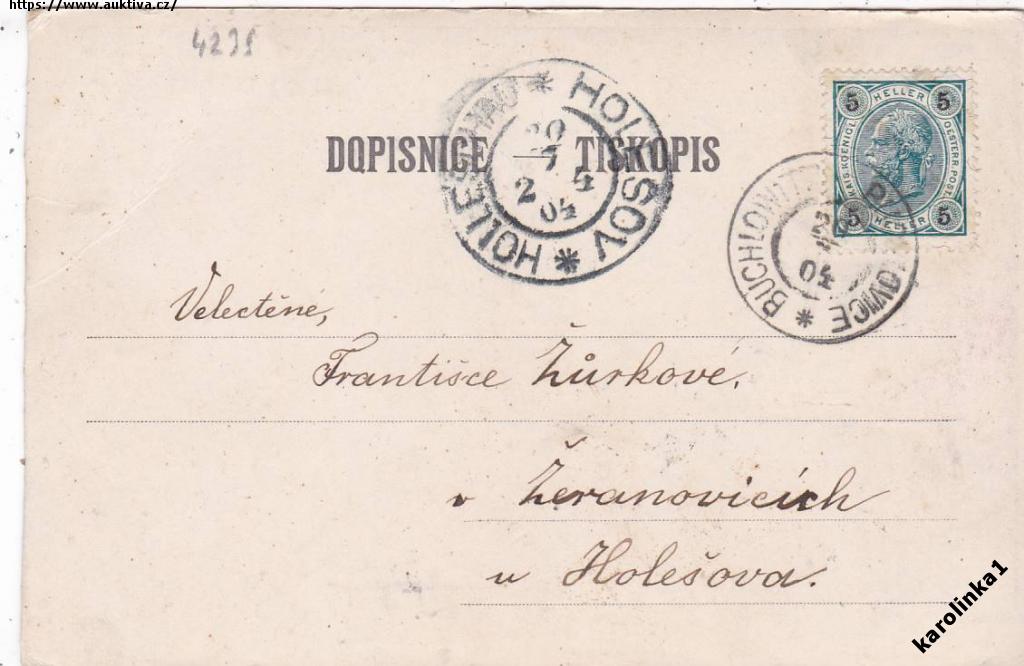 https://www.auktiva.cz/
4239
HOLLESCHAU * HOLEŠOV *
20
7
2 5
04
DOPISNICE — TISKOPIS
5 HELLER 5
KAIS. KOENIGL. OESTERR. POST
5 HELLER 5
BUCHLOWITZ
OVICE *
04
Velectěné,
Františce Žůrkové.
v Žeranovicích
u Holešova.
karolinka1